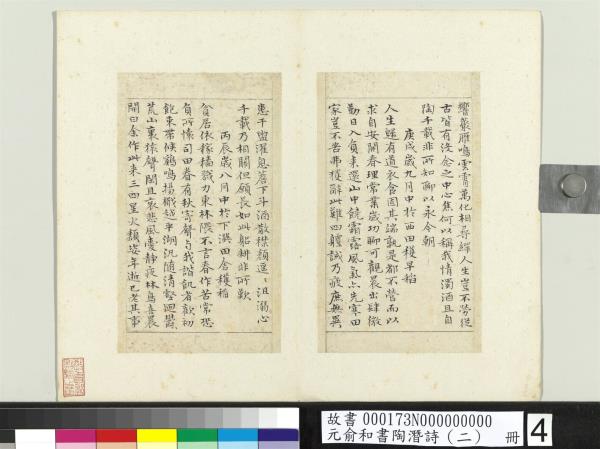 響叢雁鳴雲霄萬化相尋繹人生豈不勞從
古皆有沒念之中心焦何以稱我情濁酒且自
陶千載非所知聊以永今朝
庚戌歲九月中於西田穫早稻
人生歸有道衣食固其端孰是都不營而以
求自安開春理常業歲功聊可觀晨出肆微
勤日入負耒還山中饒霜露風氣亦先寒田
家豈不苦弗穫辭此難四體誠乃疲庶無異
患干盥濯息簷下斗酒散襟顏遥〻沮溺心
千載乃相關但願長如此躬耕非所歎
丙辰歲八月中於下潠田舍穫稻
貧居依稼穡戮力東林隈不言春作苦常恐
負所懷司田眷有秋寄聲与我諧飢者歡初
飽束帶候鶴鳴揚檝越平湖汎隨清壑迴鬱〻
荒山裏猿聲閑且哀悲風愛靜夜林鳥喜晨
開曰余作此來三四星火頹姿年逝已老其事
故書 000173N000000000
元俞和書陶潛詩(二) 冊 4